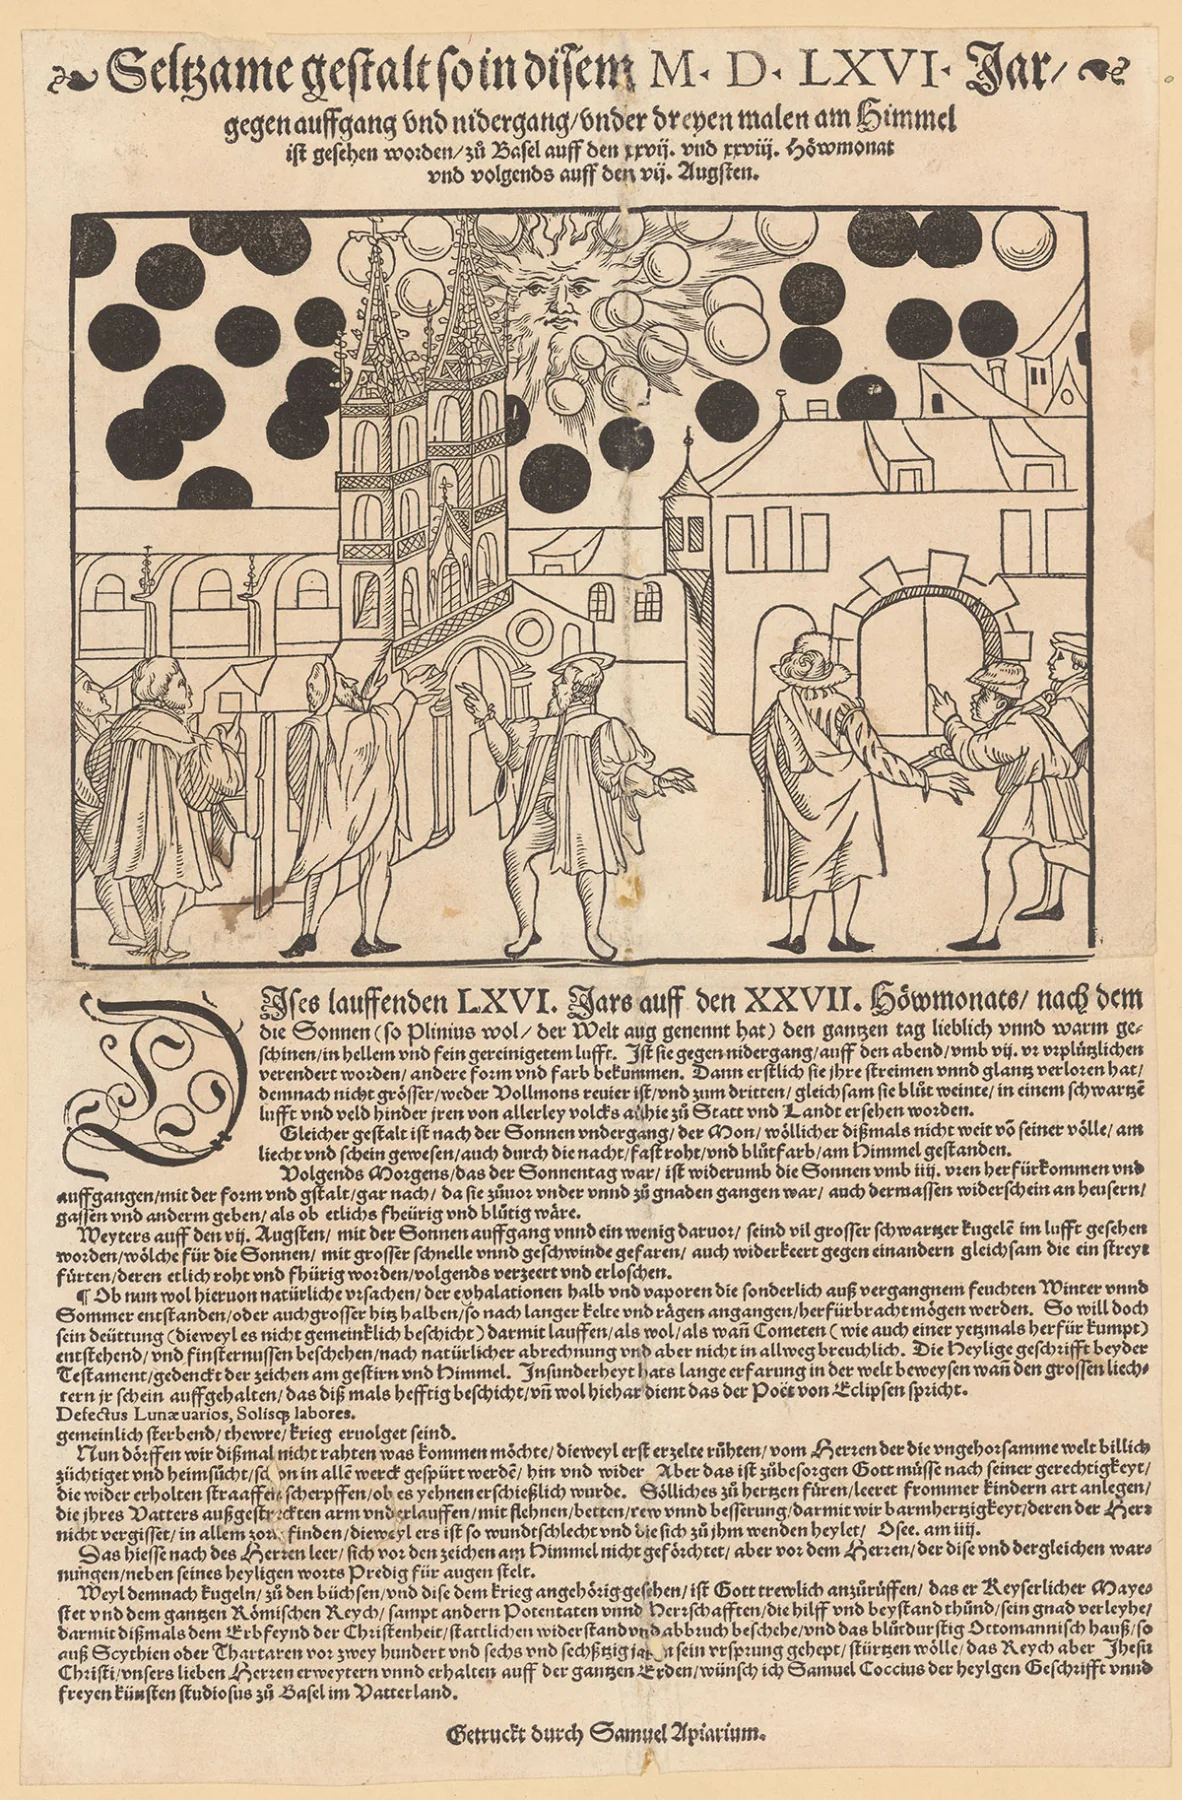 Seltzame gestalt so in disem M. D. LXVI. Jar/
gegen auffgang vnd nidergang/vnder dreyen malen am Himmel
ist gesehen worden/zů Basel auff den xxvij. vnd xxviij. Höwmonat
vnd volgends auff den vij. Augsten.
DIses lauffenden LXVI. Jars auff den XXVII. Höwmonats/ nach dem
die Sonnen (so Plinius wol/ der Welt aug genennt hat) den gantzen tag lieblich vnnd warm ge-
schinen/in hellem vnd fein gereinigetem lufft. Ist sie gegen nidergang/auff den abend/vmb vij. vr vrplützlichen
verendert worden/ andere form vnd farb bekummen. Dann erstlich sie jhre streimen vnnd glantz verloren hat/
demnach nicht grösser/weder Vollmons reuier ist/vnd zum dritten/ gleichsam sie blůt weinte/ in einem schwartzē
lufft vnd veld hinder jren von allerley volcks alhie zů Statt vnd Landt ersehen worden.
Gleicher gestalt ist nach der Sonnen vndergang/ der Mon/ wöllicher dißmals nicht weit vō seiner völle/ am
liecht vnd schein gewesen/auch durch die nacht/fast roht/vnd blůtfarb/am Himmel gestanden.
Volgends Morgens/das der Sonnentag war/ ist widerumb die Sonnen vmb iiij. vren herfürkommen vnd
auffgangen/mit der form vnd gstalt/gar nach/ da sie zůuor vnder vnnd zů gnaden gangen war/ auch dermassen widerschein an heusern/
gassen vnd anderm geben/ als ob etlichs fheürig vnd blůtig wäre.
Weyters auff den vij. Augsten/ mit der Sonnen auffgang vnnd ein wenig daruor/ seind vil grosser schwartzer kugelē im lufft gesehen
worden/wölche für die Sonnen/ mit grosser schnelle vnnd geschwinde gefaren/ auch widerkeert gegen einandern gleichsam die ein streyt
fürten/deren etlich roht vnd fhürig worden/volgends verzeert vnd erloschen.
¶ Ob nun wol hieruon natürliche vrsachen/ der exhalationen halb vnd vaporen die sonderlich auß vergangnem feuchten Winter vnnd
Sommer entstanden/oder auch grosser hitz halben/so nach langer kelte vnd rägen angangen/herfürbracht mögen werden. So will doch
sein deüttung (dieweyl es nicht gemeinklich beschicht) darmit lauffen/als wol/als wañ Cometen (wie auch einer yetzmals herfür kumpt)
entstehend/vnd finsternussen beschehen/nach natürlicher abrechnung vnd aber nicht in allweg breuchlich. Die Heylige geschrifft beyder
Testament/gedenckt der zeichen am gestirn vnd Himmel. Insunderheyt hats lange erfarung in der welt beweysen wañ den grossen liech-
tern jr schein auffgehalten/das diß mals hefftig beschicht/vñ wol hiehar dient das der Poët von Eclipsen spricht.
Defectus Lunæ uarios, Solisq; labores.
gemeinlich sterbend/ thewre/krieg eruolget seind.
Nun dörffen wir dißmal nicht rahten was kommen möchte/dieweyl erst erzelte růhten/ vom Herren der die vngehorsamme welt billich
züchtiget vnd heimsůcht/schon in allē werck gespürt werdē/ hin vnd wider Aber das ist zůbesorgen Gott müsse nach seiner gerechtigkeyt/
die wider erholten straaffen scherpffen/ob es yehnen erschießlich wurde. Sölliches zů hertzen füren/leeret frommer kindern art anlegen/
die jhres Vatters außgestreckten arm vnderlauffen/mit flehnen/betten/rew vnnd besserung/darmit wir barmhertzigkeyt/deren der Herr
nicht vergisset/in allem zorn finden/dieweyl ers ist so wundtschlecht vnd die sich zů jhm wenden heylet/ Osee. am iiij.
Das hiesse nach des Herren leer/sich vor den zeichen am Himmel nicht geförchtet/ aber vor dem Herren/der dise vnd dergleichen war-
nungen/neben seines heyligen worts Predig für augen stelt.
Weyl demnach kugeln/zů den büchsen/vnd dise dem krieg angehörig gesehen/ist Gott trewlich anzůrůffen/ das er Keyserlicher Maye-
stet vnd dem gantzen Römischen Reych/ sampt andern Potentaten vnnd Herrschafften/die hilff vnd beystand thůnd/sein gnad verleyhe/
darmit dißmals dem Erbfeynd der Christenheit/stattlichen widerstand vnd abbruch beschehe/vnd das blůtdurstig Ottomannisch hauß/so
auß Scythien oder Thartaren vor zwey hundert vnd sechs vnd sechßtzig jarn sein vrsprung gehept/ stürtzen wölle/das Reych aber Jhesu
Christi/vnsers lieben Herren erweytern vnnd erhalten auff der gantzen Erden/wünsch ich Samuel Coccius der heylgen Geschrifft vnnd
freyen künsten studiosus zů Basel im Vatterland.
Getruckt durch Samuel Apiarium.